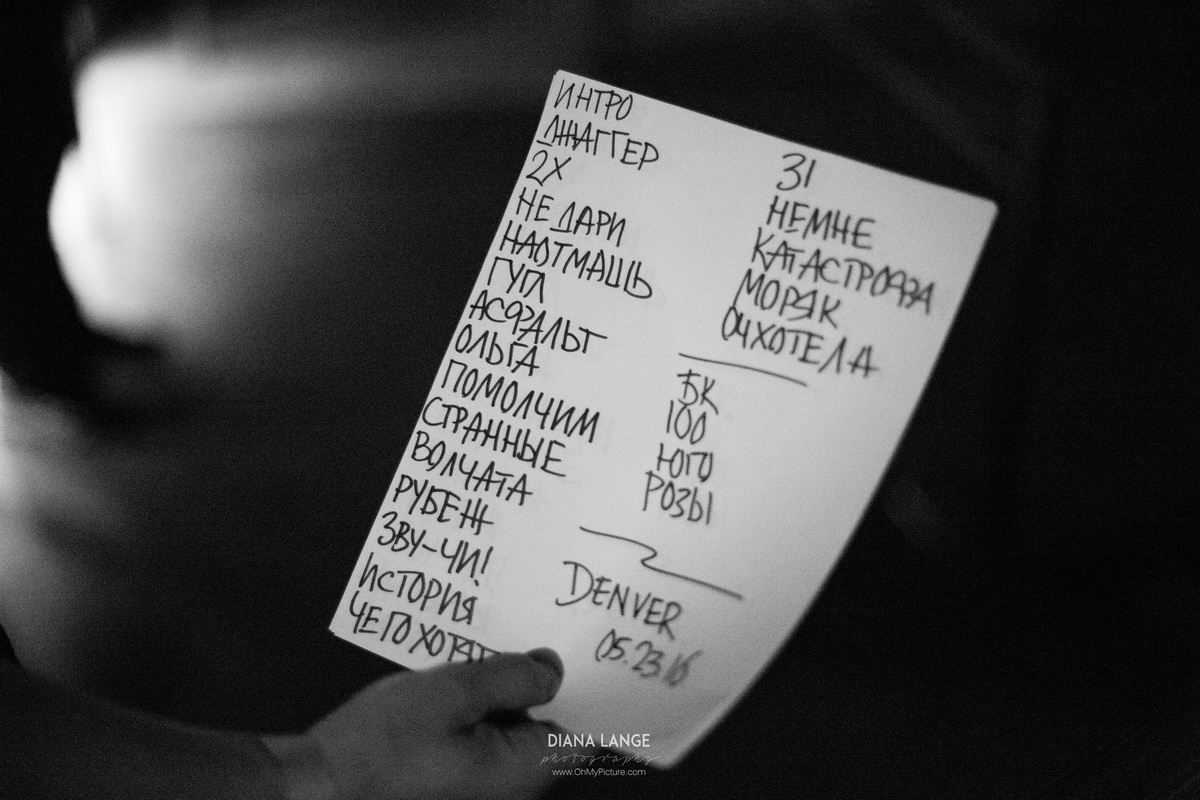 ИНТРО
ДЖАГГЕР
2X
НЕ ДАРИ
НАОТМАШЬ
ГУГЛ
АСФАЛЬТ
ОЛЬГА
ПОМОЛЧИМ
СТРАННЫЕ
ВОЛЧАТА
РУБЕЖ
ЗВУ-ЧИ!
ИСТОРИЯ
ЧЕГО ХОТЯТ
31
НЕМНЕ
КАТАСТРОФА
МОРЯК
ОЧХОТЕЛА
БК
100
ЮГО
РОЗЫ
DENVER
05.23.16
DIANA LANGE
photography
www.OhMyPicture.com